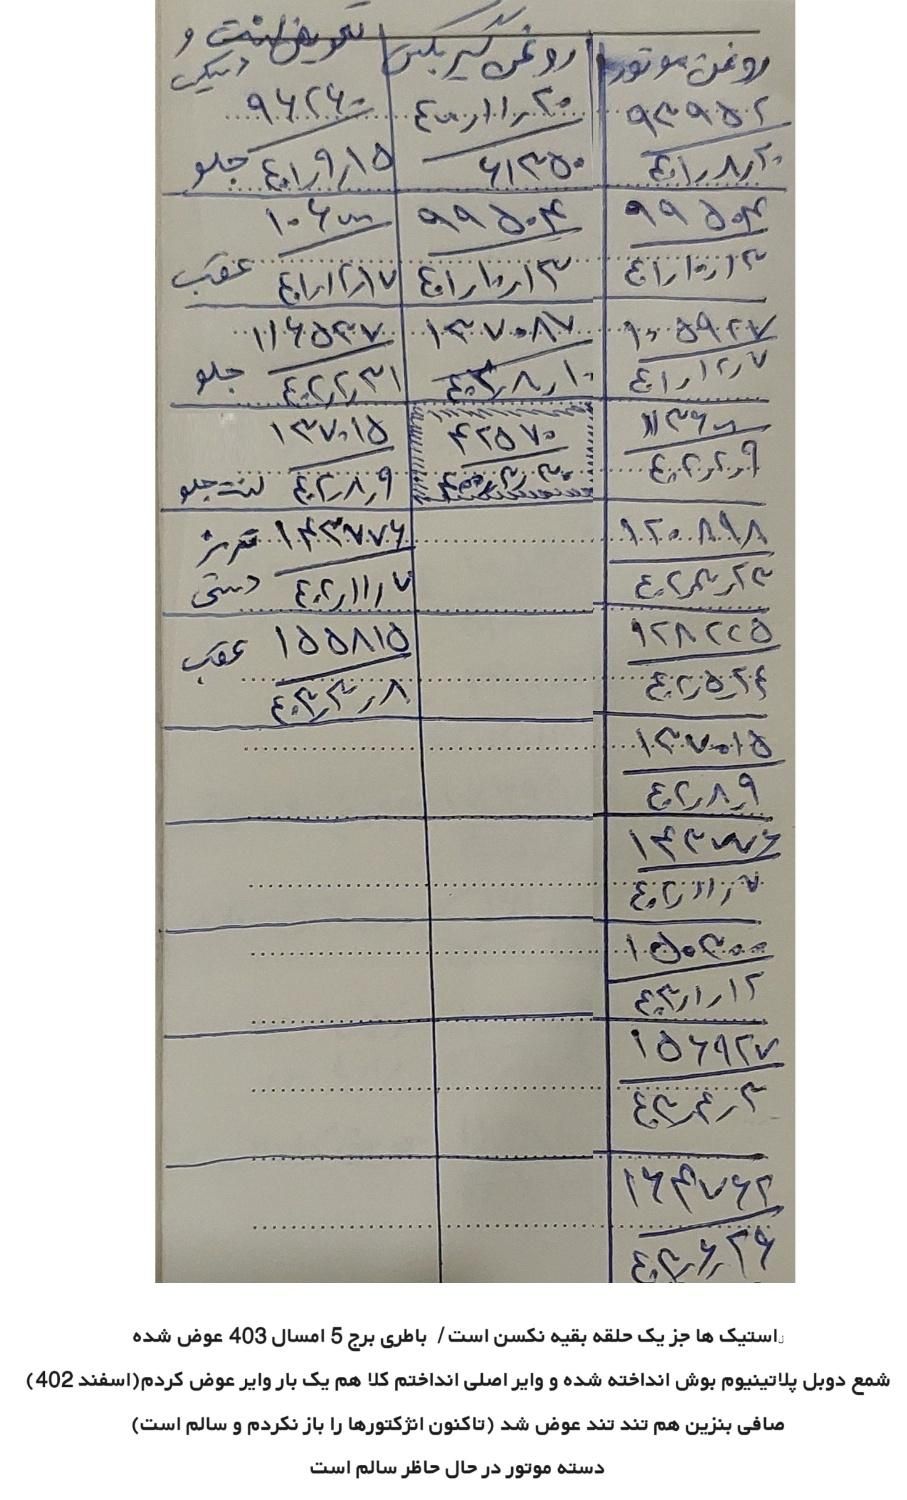 روغن موتور روغن گیربکس تعویض لنت و
دیسکی
۹۳۹۵۲ ۴۰۰/۱۱/۲۰ ۹۶۲۶۰
۴۰۱/۸/۲۰ ۶۱۳۵۰ ۴۰۱/۹/۱۵ جلو
۹۹۵۰۴ ۹۹۵۰۴ ۱۰۶۳۰۰
۴۰۱/۱۰/۱۳ ۴۰۱/۱۰/۱۳ ۴۰۱/۱۲/۱۷ عقب
۱۰۵۹۲۷ ۱۳۷۰۸۷ ۱۱۶۵۳۷
۴۰۱/۱۲/۷ ۴۰۳/۸/۱۰ ۴۰۲/۲/۳۱ جلو
۱۱۳۶۰۰ ۴۲۵۷۰ ۱۳۷۰۱۵
۴۰۲/۲/۹ ۴۰۲/۸/۹ لنت جلو
۱۲۰۸۹۸ ۱۴۳۷۷۶ ترمز
۴۰۲/۳/۲۳ ۴۰۲/۱۱/۷ دستی
۱۲۸۲۲۵ ۱۵۵۸۱۵ عقب
۴۰۲/۵/۲۴ ۴۰۳/۳/۸
۱۳۷۰۱۵
۴۰۲/۸/۹
۱۴۳۷۷۶
۴۰۲/۱۱/۷
۱۵۰۳۰۰
۴۰۳/۱/۱۲
۱۵۶۹۲۷
۴۰۳/۴/۳
۱۶۴۷۶۲
۴۰۳/۶/۲۶
لاستیک ها جز یک حلقه بقیه نکسن است/ باطری برج 5 امسال 403 عوض شده
شمع دوبل پلاتینیوم بوش انداخته شده و وایر اصلی انداختم کلا هم یک بار وایر عوض کردم(اسفند 402)
صافی بنزین هم تند تند عوض شد (تاکنون انژکتورها را باز نکردم و سالم است)
دسته موتور در حال حاظر سالم است